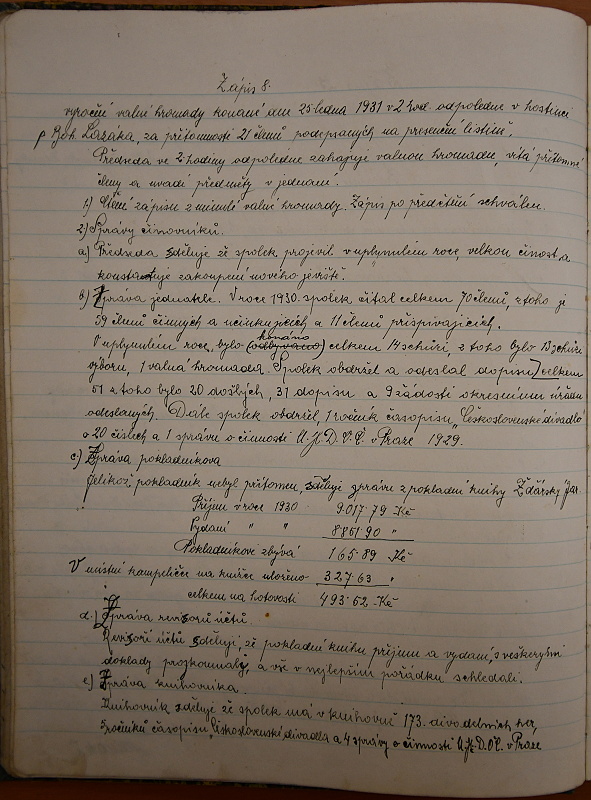 Zápis 8.
výroční valné hromady konané dne 25 ledna 1931 v 2 hod. odpoledne v hostinci
p Boh. Lazáka, za přítomnosti 21 členů podepsaných na presenční listině.
Předseda ve 2 hodiny odpoledne zahajuje valnou hromadu, vítá přítomné
členy a uvádí předměty v jednání.
1.) Čtení zápisu z minulé valné hromady. Zápis po předčtení schválen.
2.) Zprávy činovníků.
a) Předseda sděluje že spolek projevil v uplynulém roce velkou činost a
konstatuje zakoupení nového jeviště.
b) Zpráva jednatele. V roce 1930. spolek čítal celkem 70 členů, z toho je
59 členů činných a účinkujících a 11 členů přispívajících.
V uplynulém roce bylo (odbýváno) konáno celkem 14 schůzí, z toho bylo 13 schůzí
výboru, 1 valná hromada. Spolek obdržel a odeslal dopisů celkem
51 z toho bylo 20 došlých, 31 dopisu a 9 žádostí okresnímu úřadu
odeslaných. Dále spolek obdržel, 1 ročník časopisu „Československé divadlo"
o 20 číslech a 1 správu o činnosti Ú.M.D.O.Č. v Praze 1929.
c) Zpráva pokladníkova
Jelikož pokladník nebyl přítomen, sděluje zprávu z pokladní knihy Žďárský Jar.
Příjem v roce 1930 9.017·79 Kč
Vydání " " 8851·90 "
Pokladníkovi zbývá 165·89 Kč
V místní kampeličce na knížce uloženo 327·63 "
celkem na hotovosti 493·52 Kč
d.) Zpráva revisorů účtů.
Revisoři účtů sdělují, že pokladní knihu příjmu a vydání, s veškerými
doklady prozkoumaly, a vše v nejlepším pořádku schledali.
e) Zpráva knihovníka.
Knihovník sděluje že spolek má v knihovně 173. divadelních her,
ročníků časopisu „Československé divadlo a 4 správy o činnosti Ú.M.D.O.Č. v Praze